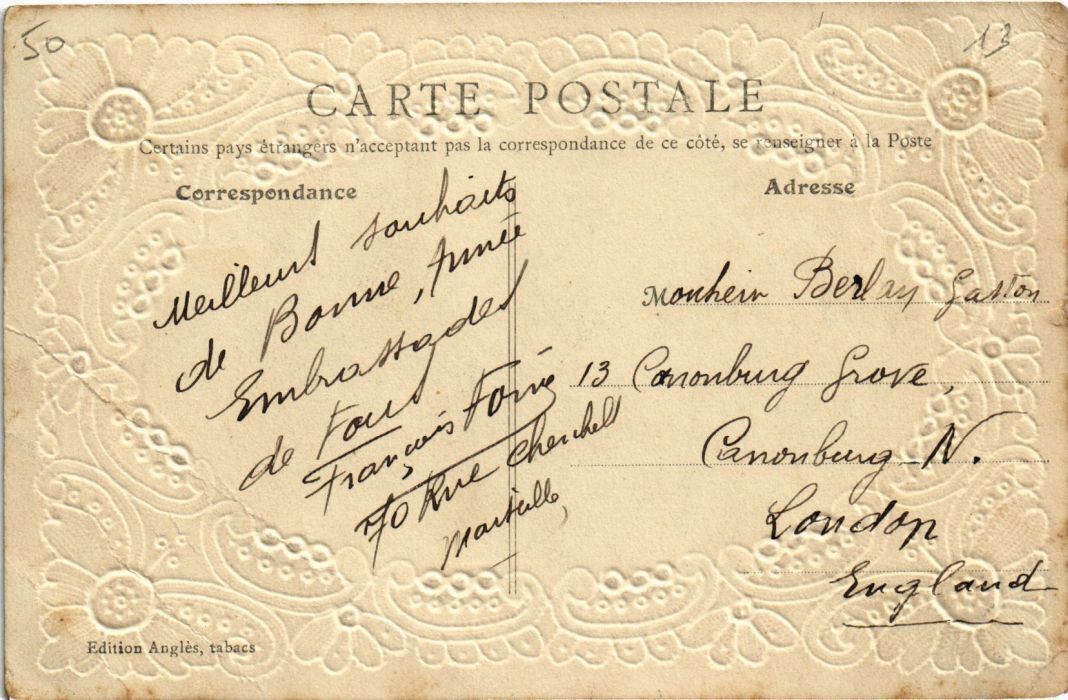 50
13
CARTE POSTALE
Certains pays étrangers n'acceptant pas la correspondance de ce côté, se renseigner à la Poste
Correspondance
Meilleurs souhaits
de Bonne, Année
Embrassades
de Tous
François
70 Rue Cherchell
Marseille,
Adresse
Gaston
13 Canonburg Grove,
Canonburg N.
London
England
Edition Anglès, tabacs